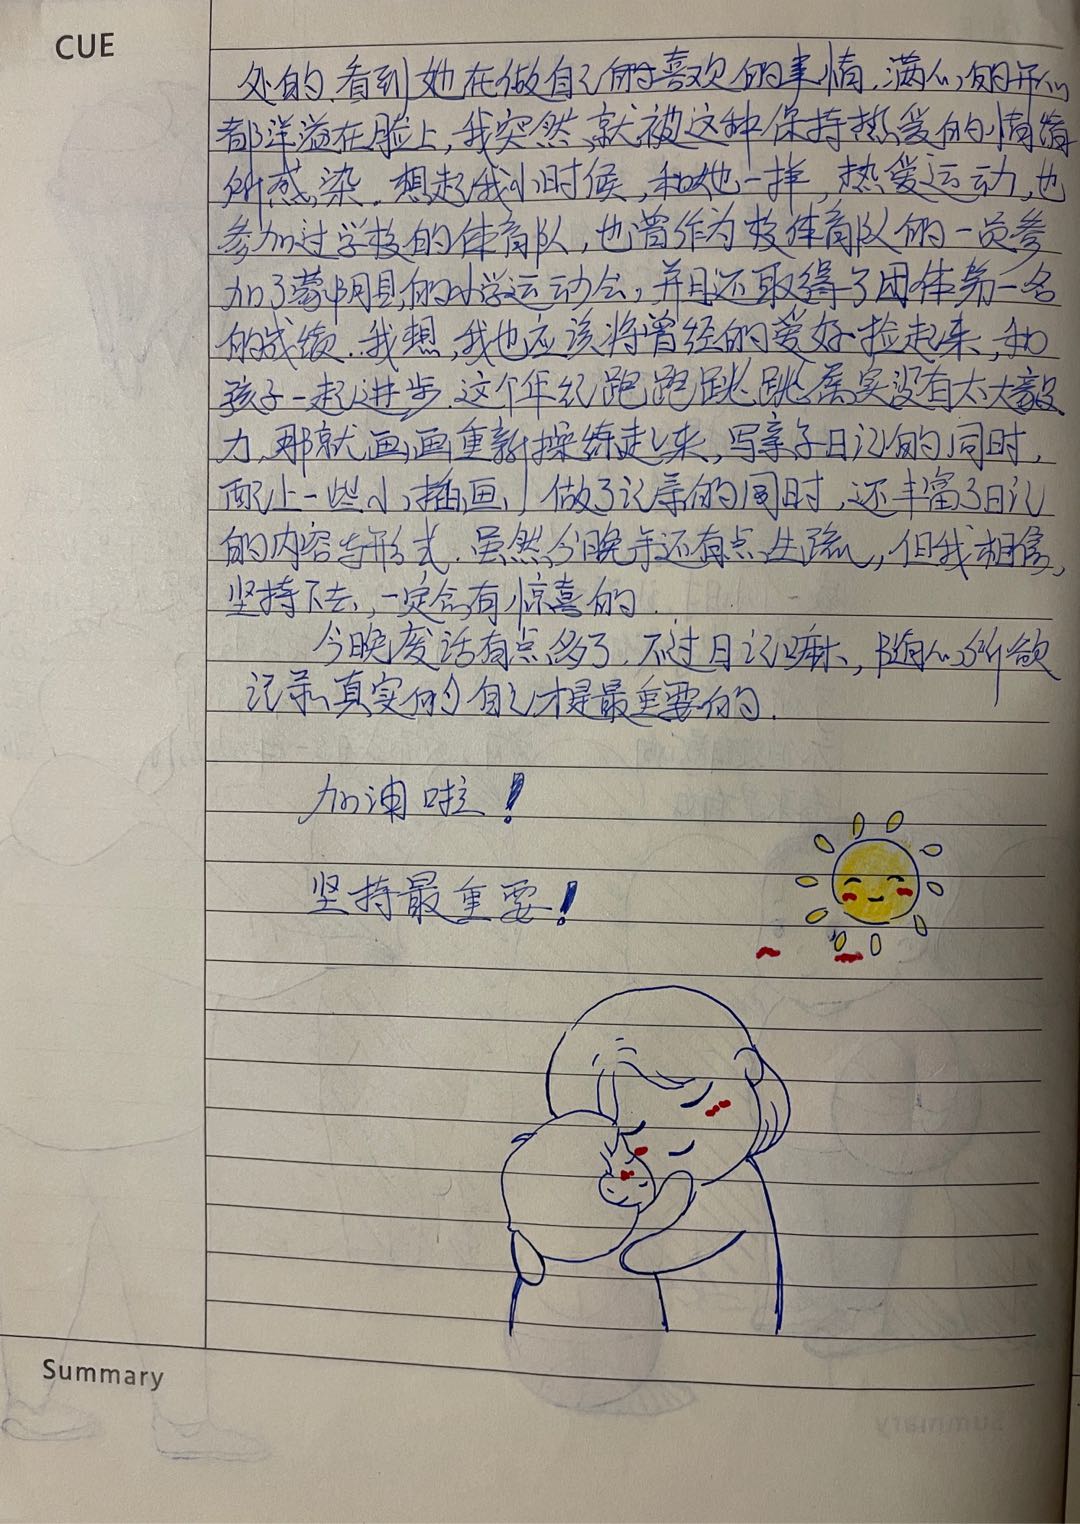 CUE
处的.看到她在做自己的喜欢的事情.满心的开心
都洋溢在脸上,我突然就被这种保持热爱的情绪
所感染.想起我小时候,和她一样,热爱运动,也
参加过学校的体育队,也曾作为校体育队的一员参
加了蒙阴县的小学运动会,并且还取得了团体第一名
的成绩.我想,我也应该将曾经的爱好捡起来,和
孩子一起进步.这个年纪跑跑跳跳属实没有太大毅
力,那就画画重新操练起来,写亲子日记的同时,
配上一些小插画,做了记录的同时,还丰富了日记
的内容与形式.虽然今晚手还有点生疏,但我相信,
坚持下去,一定会有惊喜的.
今晚废话有点多了.不过日记嘛,随心所欲
记录真实的自己才是最重要的.
加油啦!
坚持最重要!
Summary